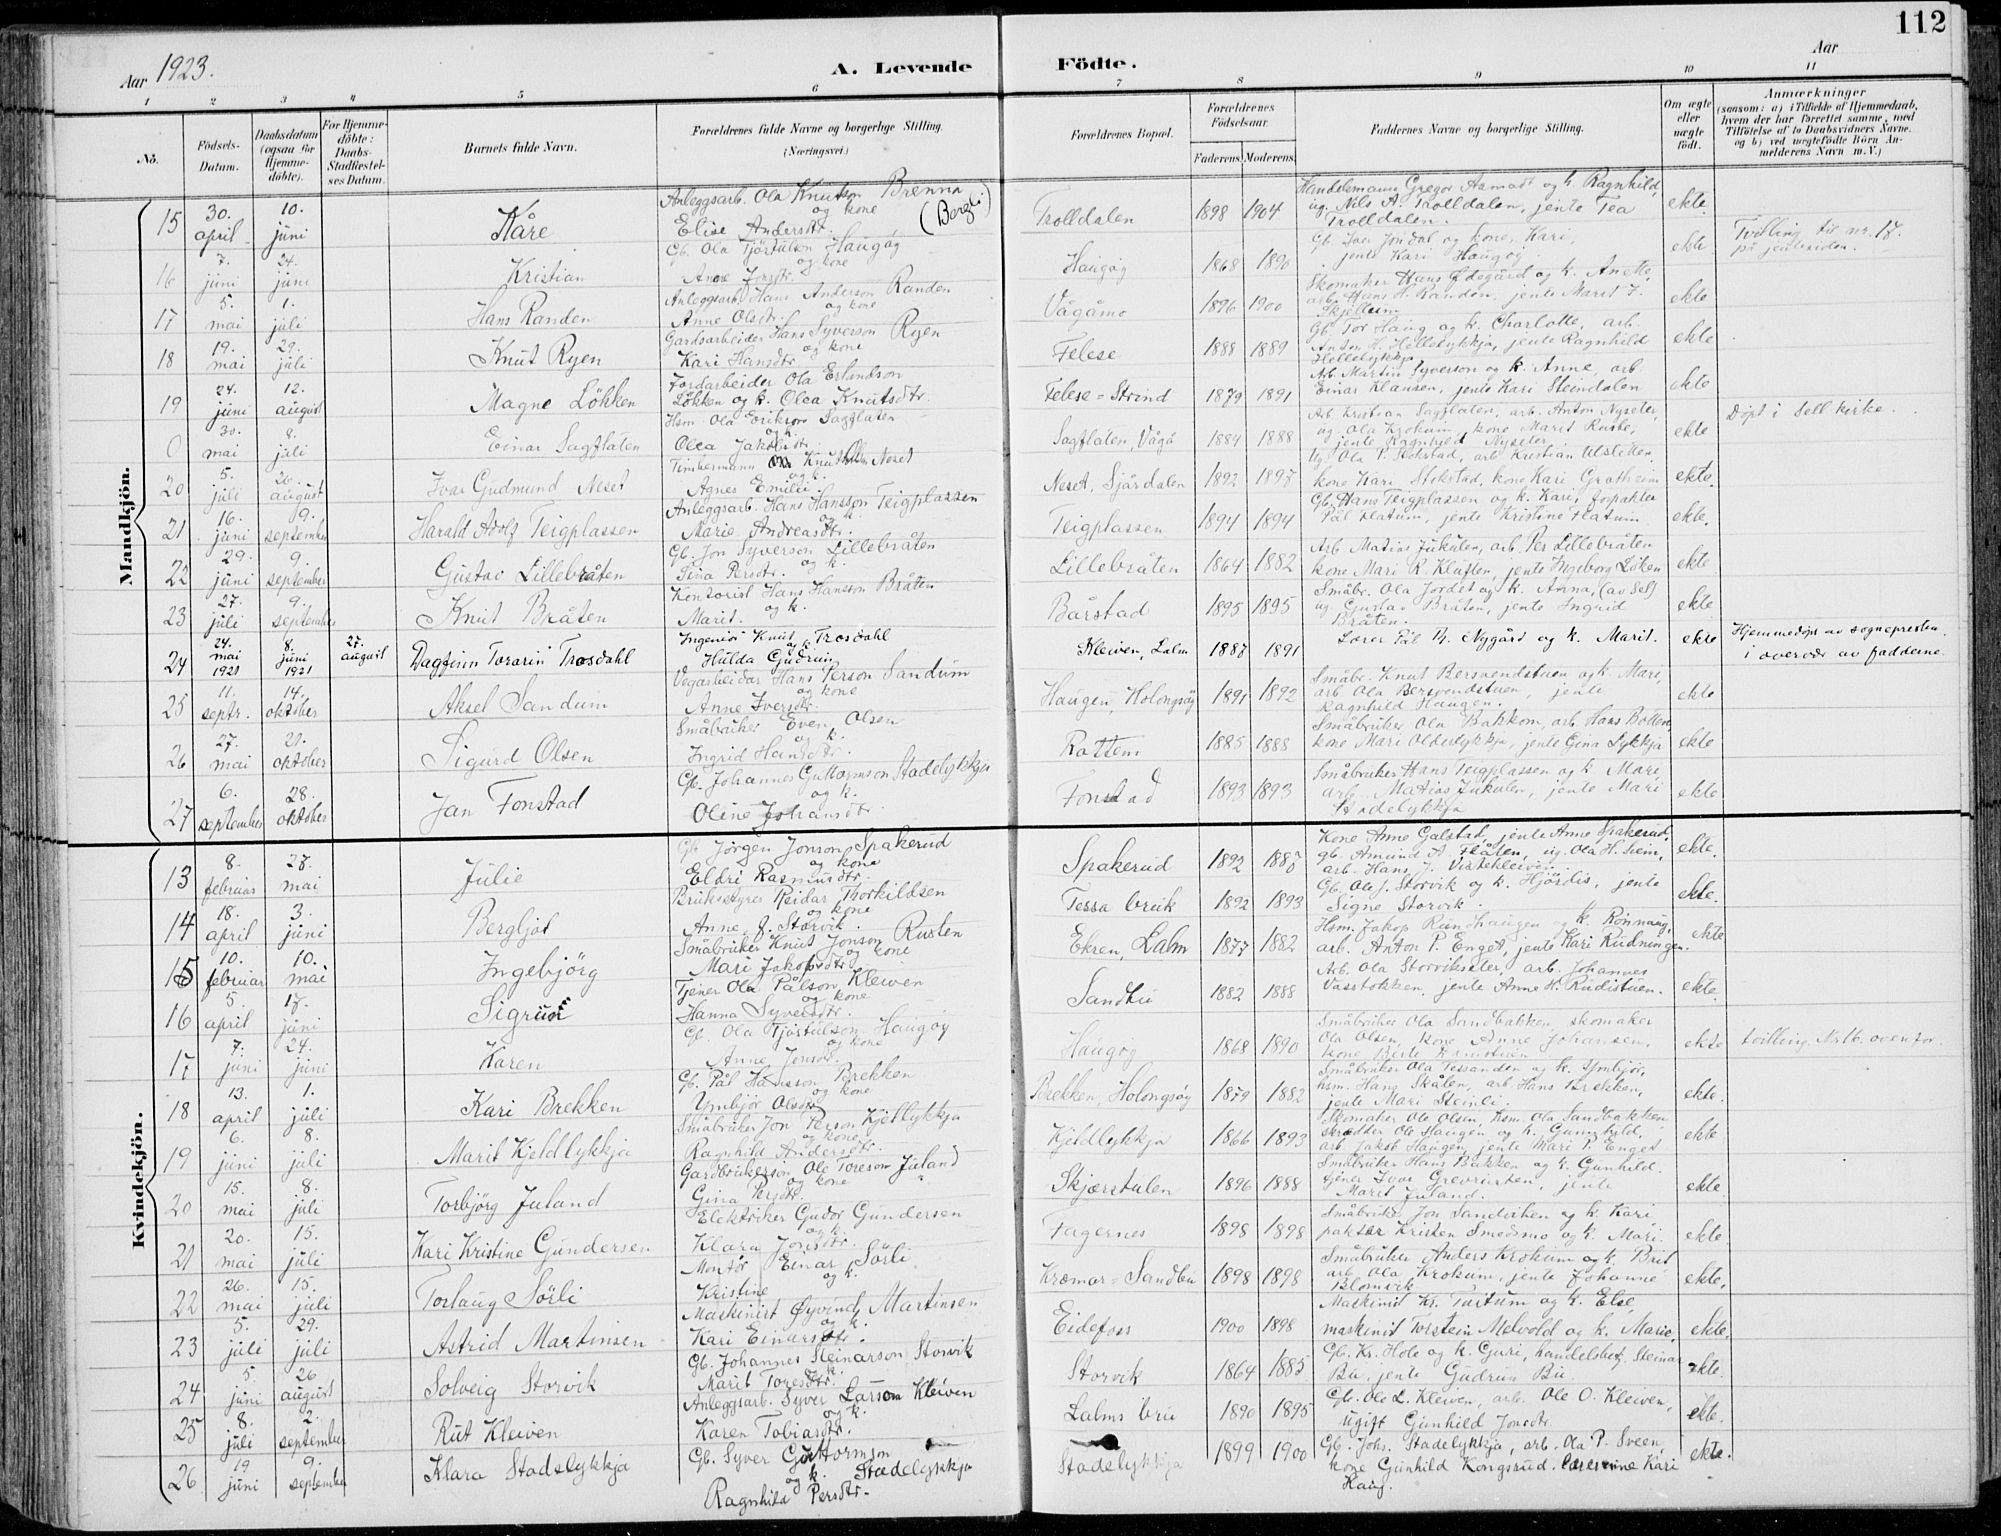 112
Aar 1923.
A. Levende Födte.
Aar
1 2 3 4 5 6 7 8 9 10 11
No.
Födsels-Datum.
Daabsdatum (ogsaa for Hjemmedöbte).
For Hjemmedöbte: Daabs-Stadfæstelses Datum.
Barnets fulde Navn.
Forældrenes fulde Navne og borgerlige Stilling. (Næringsvei.)
Forældrenes Bopæl.
Forældrenes Födselsaar. Faderens. Moderens.
Faddernes Navne og borgerlige Stilling.
Om ægte eller uægte födt.
Anmærkninger (saasom: a) i Tilfælde af Hjemmedaab, hvem der har forrettet samme, med Tilföielse af to Daabsvidners Navne. og b) ved uægtefödte Börn Anmelderens Navn m. V.)
Mandkjön.
15 30. april 10. juni Kåre Anleggsarb. Ola Knutson Brenna (Bergli) og kone Elise Andersdtr. Trolldalen 1898 1904 Handelsmann Gregor Aamodt og k. Ragnhild, ug. Nils A. Trolldalen, jente Tea Trolldalen. ekte.
16 7. juni 24. juni Kristian Gb. Ola Tjöstulson Haugøy og kone Anne Jonsdtr. Haugøy 1868 1890 Jondal og kone Kari, jente Kari Haugøy ekte Tvilling til nr. 17. på jentesiden.
17 5. mai 1. juli Hans Randen Anleggsarb. Hans Anderson Randen og kone Anne Olsdtr. Vågåmo 1896 1900 Skomaker Hans Ødegård og k. Anette, arb. Hans H. Randen, jente Marit J. Skjellum. ekte
18 19. mai 29. juli Knut Ryen Gardsarbeider Hans Syverson Ryen og kone Kari Hansdtr. Felese 1888 1889 Gb. Tor Haug og k. Charlotte, arb. Anton H. Hellelykkja, jente Ragnhild Hellelykkja. ekte
19 24. juni 12. august Magne Lökken Jordarbeider Ola Erlandson Lökken og k. Olea Knutsdtr. Felese = Strind 1879 1891 Arb. Martin Syverson og k. Anne, arb. Einar Klausen, jente Kari Steindalen ekte
0 30. mai 8. juli Einar Sagflaten Hsm. Ola Erikson Sagflaten og k. Olea Jakobsdtr. Sagflaten, Vågå 1884 1888 Arb. Kristian Sagflaten, arb. Anton Nyseter, ug. Ola Krokum, kone Marit Rusbe, jente Ragnhild Nyseter. ekte Döpt i Sell kirke.
20 5. juli 26. august Ivar Gudmund Neset Timbermann Knut Neset og k. Agnes Emilie Neset, Sjårdalen 1892 1897 Ug. Ola P. Stokstad, arb. Kristian Ulsletten, kone Kari Stokstad, kone Kari Grotheim ekte.
21 16. juni 9. september Harald Adolf Teigplassen Anleggsarb. Hans Hansson Teigplassen og k. Marie Andreasdtr. Teigplassen 1894 1894 Gb. Hans Teigplassen og k. Kari, forpakter Pål Flatum, jente Kristine Flatum ekte.
22 29. juni 9. september Gustav Lillebråten Gb. Jon Syverson Lillebråten og k. Sina Persdtr. Lillebråten 1864 1882 Arb. Matias Jukulen, arb. Per Lillebråten kone Mari R. Kluften, jente Ingeborg Löken ekte
23 27. juli 9. september Knut Bråten Kontorist Hans Hanson Bråten og k. Marit. Bårstad 1895 1895 Småbr. Ola Jordet og k. Anna, (av Sel) ug. Gustav Bråten, jente Ingrid Bråten. ekte
24 24. mai 1921 8. juni 1921 27. august Dagfinn Torarin Trosdahl Ingeniör Knut Trosdahl og k. Hulda Gudrun Kleiven, Lalm 1887 1891 Lærer Pål Th. Nygård og k. Marit. ekte Hjemmedöpt av sognepresten i overvær av fadderne.
25 11. septr. 14. oktober Aksel Sandum Vegarbeider Hans Person Sandum og kone Anne Iversdtr. Haugen, Holongsöy 1891 1892 Småbr. Knut Bersvendstuen og k. Mari, arb. Ola Bersvendstuen, jente Ragnhild Haugen. ekte
26 27. mai 21. oktober Sigurd Olsen Småbruker Even Olsen og k. Ingrid Hansdtr. Rottem 1885 1888 Småbruker Ola Bakkom, arb. Hans Botten, kone Mari Olderlykkja, jente Gina Lykkja ekte
27 6. september 28. oktober Jan Fonstad Gb. Johannes Guttormson Stadelykkja og k. Oline Johansdtr. Fonstad 1893 1893 Småbruker Hans Teigplassen og k. Mari, arb. Matias Jukulen, jente Mari Stadelykkja ekte
Kvindekjön.
13 8. februar 27. mai Julie Gb. Jörgen Jonson Spakerud og kone Eldri Rasmusdtr. Spakerud 1892 Kone Anne Galstad, jente Anne Spakerud, gb. Amund A. Flåten, ug. Ola H. heim, arb. Hans J. Vistekleiven. ekte.
14 18. april 3. juni Bergljot Bruksstyrer Reidar Thorkildsen og kone Anne J. Storvik. Tessa bruk 1892 1893 Gb. Ole J. Storvik og k. Hjördis, jente Signe Storvik. ekte.
15 10. februar 10. mai Ingebjörg Småbruker Knut Jonson Rusten og kone Mari Jakopsdtr. Ekren, Lalm 1877 1882 Hsm. Jakop Rundhaugen og k. Rönnaug, arb. Anton P. Enget, jente Kari Rudningen. ekte
16 5. april 17. juni Sigrun Tjener Ola Pålson Kleiven og kone Hanna Syversdtr. Sandbu 1882 1888 Arb. Ola Storvikseter, arb. Johannes Vasstokken, jente Anne H. Rudistuen. ekte.
17 7. juni 24. juni Karen Gb. Ola Tjöstulson Haugøy og kone Anne Jonsdtr. Haugøy 1868 1890 Småbruker Ola Sandbakken, skomaker Ola Olsen, kone Anne Johansen, kone Berte ekte tvilling. Nr. 16. ovenfor.
18 13. april 1. juli Kari Brekken Gb. Pål Hansson Brekken og kone Ymbjör Olsdtr. Brekken, Holongsöy 1879 1882 Småbruker Ola Tessanden og k. Ymbjör, hsm. Hans Skålen, arb. Hans Brekken, jente Mari Steinli. ekte.
19 6. juni 8. juli Marit Kjeldlykkja Småbruker Jon Person Kjellykkja og kone Ragnhild Andersdtr. Kjeldlykkja 1866 1893 Skomaker Ole Olsen, hsm. Ola Sandbakken skrædder Ole Haugen og k. Gunhild, arb. Jakob Haugen, jente Mari P. Enget ekte
20 15. mai 8. juli Torbjörg Juland Gardbrukerson Ole Toreson Juland og kone Gina Persdtr. Skjærstulen 1896 1888 Småbruker Hans Bakken og k. Gunhild. tjener Ivar Grevrusten, jente Marit Juland. ekte.
21 20. mai 15. juli Kari Kristine Gundersen Elektriker Gudor Gundersen og k. Klara Jonsdtr. Fagernes 1898 1898 Småbruker Jon Sandviken og k. Kari pakter Kristen Smedsmo og k. Mari. ekte.
22 26. mai 15. juli Torlaug Sörli Montör Einar Sörli og k. Kristine Kræmar = Sandbu 1898 1898 Småbruker Anders Krokum og k. Brit arb. Ola Krokum, jente Johanne Blomvik ekte.
23 5. juli 29. juli Astrid Martinsen Maskinist Øyvind Martinsen og k. Kari Einarsdtr. Eidefoss 1900 1898 Maskinist Kr. Turtum og k. Else, maskinist Torstein Melvold og k. Marie. ekte.
24 5. juni 26 august Solveig Storvik Gb. Johannes Steinarson Storvik og k. Marit Toresdtr. Storvik 1864 1885 Gb. Kr. Hole og k. Guri, handelsbet. Steinar Bu, jente Gudrun Bu. ekte.
25 8. juli 2. september Rut Kleiven Anleggsarb. Syver Larson Kleiven og k. Karen Tobiasdtr. Lalms bru 1890 1895 Gb. Ole L. Kleiven, arb. Ole O. Kleiven, ugift Gunhild Jonsdtr. ekte.
26 19 juni 9. september Klara Stadelykkja Gb. Syver Guttormson Stadelykkja og k. Ragnhild Persdtr. Stadelykkja 1899 1900 Gb. Johs. Stadelykkja, arb. Ola P. Sveen, kone Gunhild Kongsrud. Kari Haug. ekte.